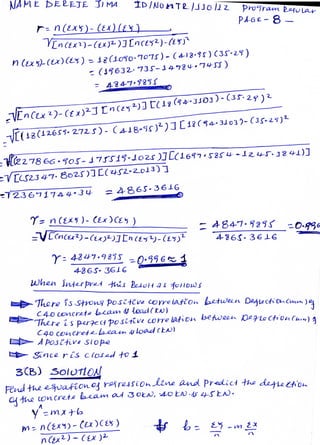 NAME DEREJE JIMA ID/NO MTR/110/12 Program Regular
PAGE - 8 -
r = n(Σxy) - (Σx)(Σy)
√[n(Σx²)-(Σx)²][n(Σy²)-(Σy)²
n(Σxy)-(Σx)(Σy) = 18(1090.7075) - (418.95)(35.29)
= (19632.735 - 14784.7455)
= 4847.9895
=√[n(Σx²)-(Σx)²][n(Σy²)-(Σy)²
=√[(18(12659.2725) - (418.95)²)][18(94.3103)-(35.29)²
=√[(227866.905-175519.1025)][(1697.5854-1245.3841)]
=√[(52347.8025)][(452.2013)]
=√23671744.34 = 4865.3616
r = n(Σxy) - (Σx)(Σy)
=√[(n(Σx²)-(Σx)²][n(Σy²)-(Σy)²
= 4847.9895 = 0.996
4865.3616
r = 4847.9895 = 0.996 ≈ 1
4865.3616
When Interpret this Result as follows
There is strong positive correlation between Deflection(mm) of
C40 concrete beam & load(kN)
There is perfect positive correlation between Deflection(mm) of
C40 concrete beam & load(kN)
A positive slope
Since r is closed to 1
3(B) SOLUTION
Find the equation of regression line and predict the deflection
of the concrete beam at 30kN, 40kN & 45kN.
y^=mx+b
m = n(Σxy)-(Σx)(Σy)
n(Σx²) - (Σx)²
b = Σy - m Σx
n n